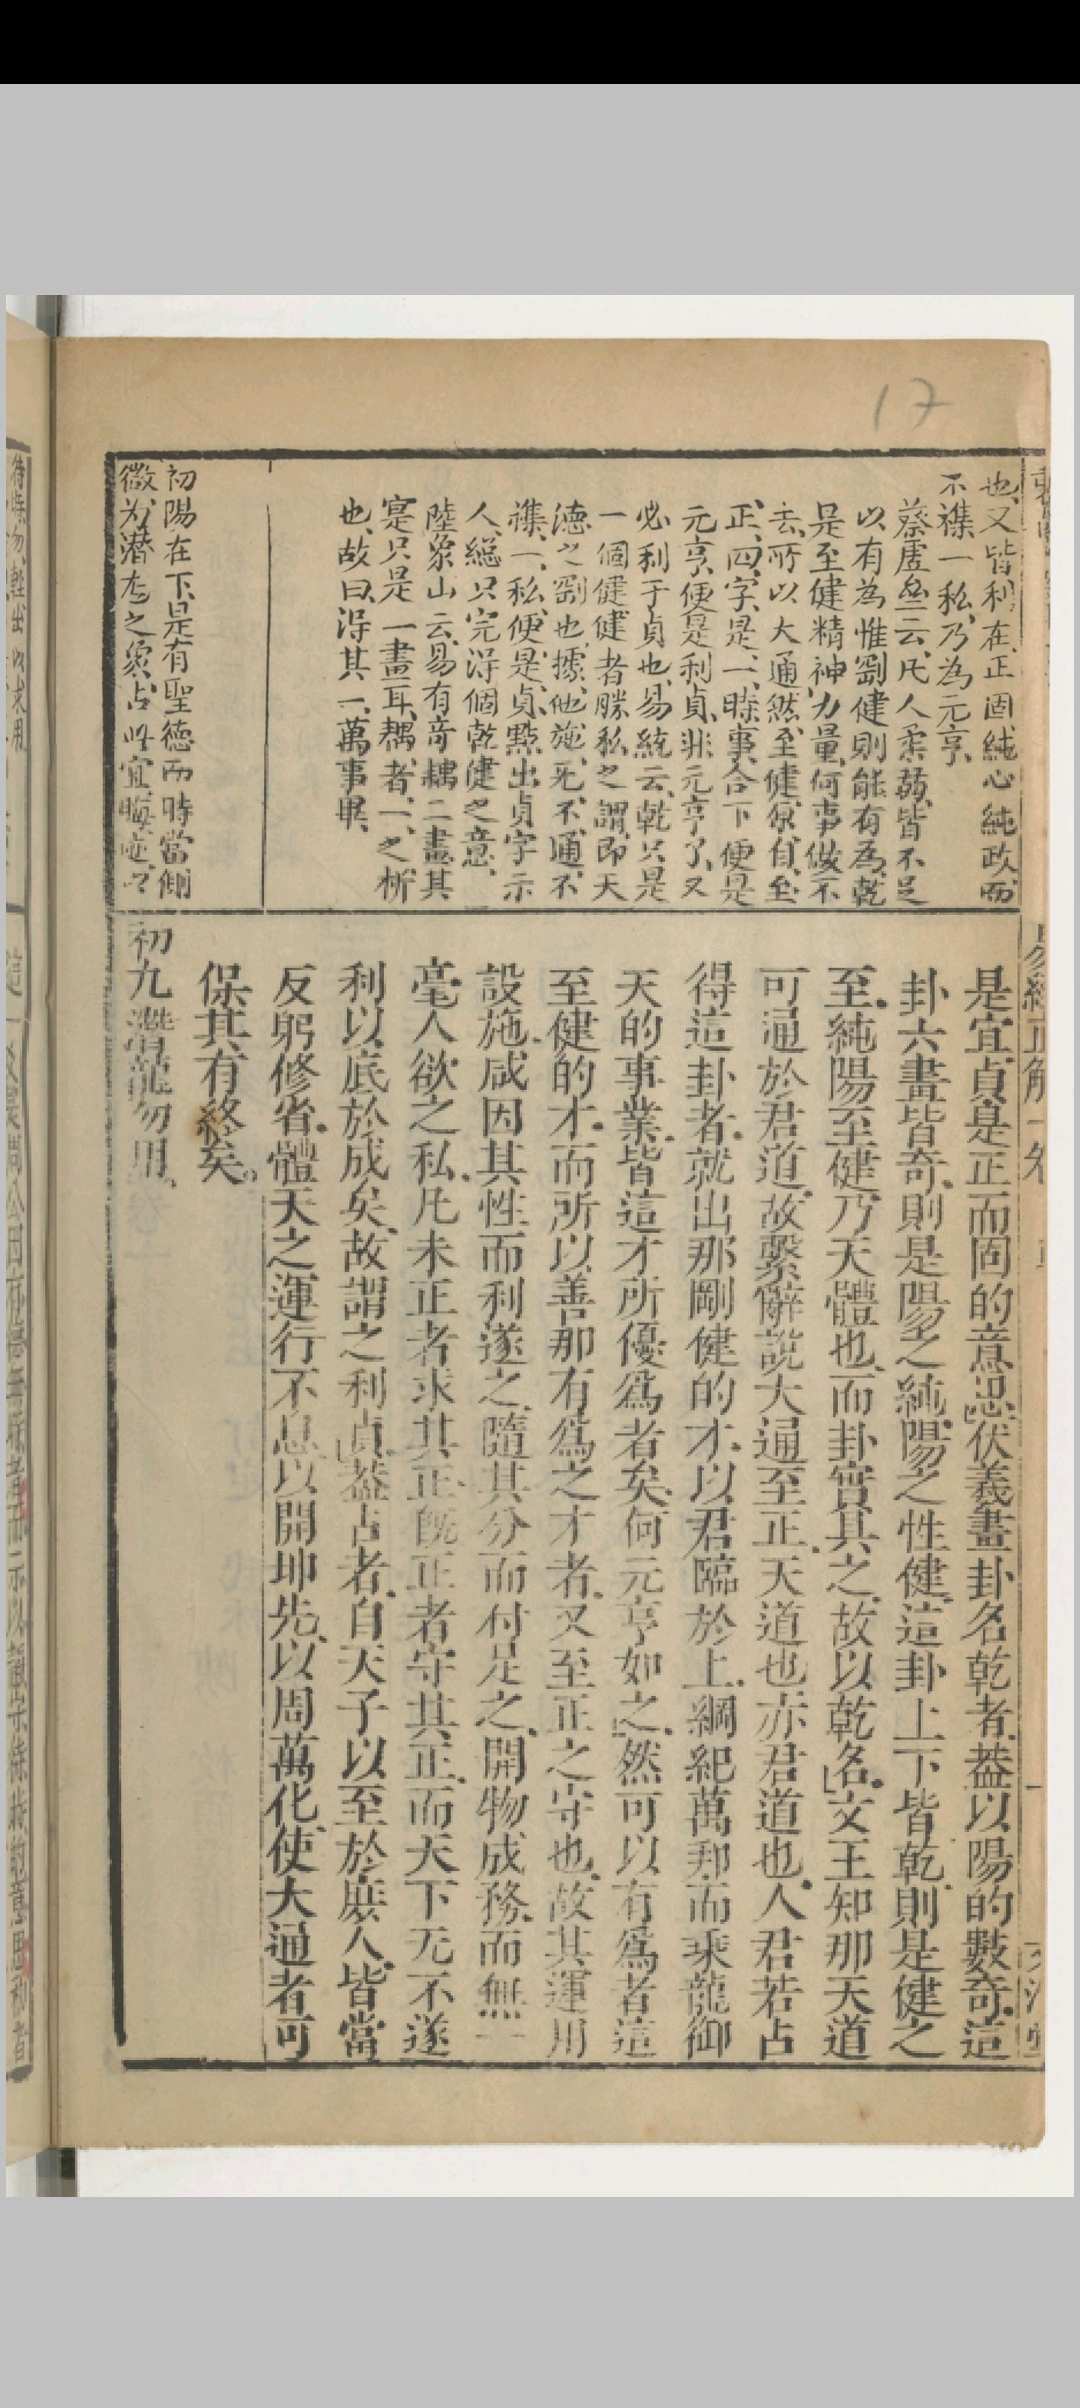 17
也又皆利在正固純心純政而
不襍一私乃為元亨
蔡虛齋云凡人柔弱皆不足
以有為惟剛健則能有為乾
是至健精神力量何事做不
去所以大通然至健原自至
正四字是一時事合下便是
元亨便是利貞非元亨了又
必利于貞也易統云乾只是
一個健健者勝私之謂即天
德之剛也據他施死不通不
襍一私便是貞點出貞字示
人總只完得個乾健之意
陸象山云易有奇耦二畫其
寔只是一畫耳耦者一之析
也故曰得其一萬事畢
初陽在下是有聖德而時當側
微為潛龙之象占此宜晦迹
是宜貞是正而固的意思伏羲畫卦名乾者葢以陽的數奇這
卦六畫皆奇則是陽之純陽之性健這卦上下皆乾則是健之
至純陽至健乃天體也而卦實具之故以乾名文王知那天道
可通於君道故繫辭說大通至正天道也亦君道也人君若占
得這卦者就出那剛健的才以君臨於上綱紀萬邦而乘龍御
天的事業皆這才所優爲者矣何元亨如之然可以有爲者這
至健的才而所以善那有爲之才者又至正之守也故其運用
設施咸因其性而利遂之隨其分而付足之開物成務而無一
毫人欲之私凡未正者求其正旣正者守其正而天下无不遂
利以底於成矣故謂之利貞葢占者自天子以至於庶人皆當
反躬修省體天之運行不息以開坤先以周萬化使大通者可
保其有終矣
初九潛龍勿用